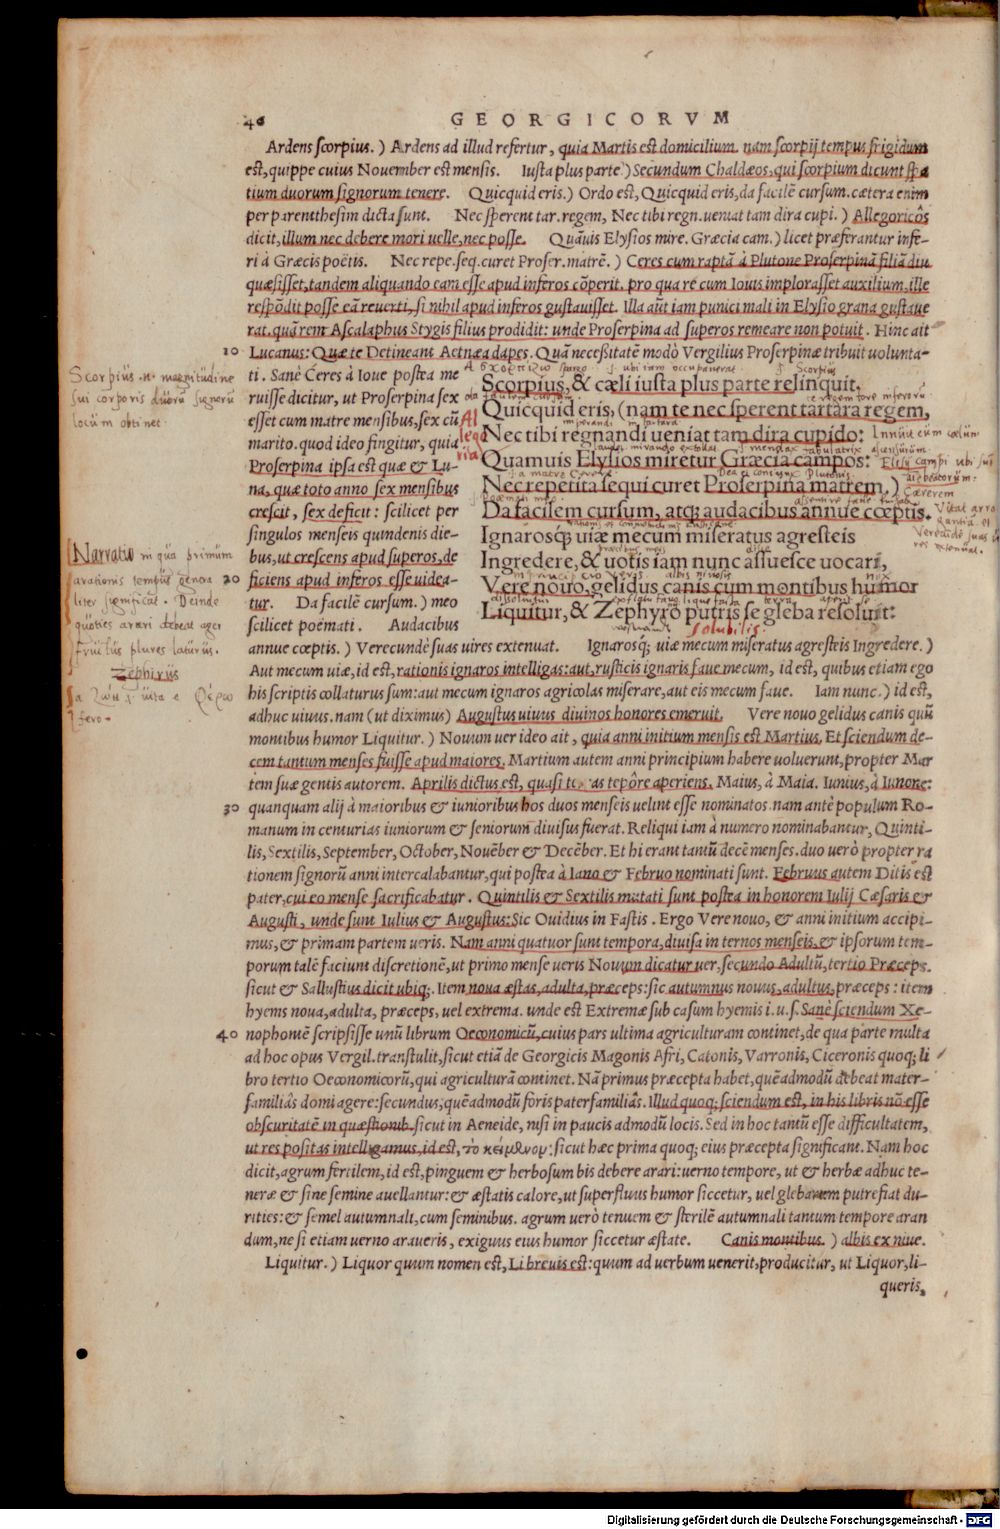 46
GEORGICORVM
Ardens scorpius.) Ardens ad illud refertur, quia Martis est domicilium. nam scorpij tempus frigidum
est, quippe cuius Nouember est mensis. Iusta plus parte.) Secundum Chaldæos, qui scorpium dicunt spa
tium duorum signorum tenere. Quicquid eris.) Ordo est, Quicquid eris, da facilē cursum. cætera enim
per parenthesim dicta sunt. Nec sperent tar. regem, Nec tibi regn. ueniat tam dira cupi.) Allegoricōs
dicit, illum nec debere mori uelle, nec posse. Quāuis Elysios mire. Græcia cam.) licet præferantur infe-
ri à Græcis poëtis. Nec repe. seq. curet Proser. matrē.) Ceres cum raptā à Plutone Proserpinā filiā diu
quæsisset, tandem aliquando eam esse apud inferos cōperit. pro qua re cum Iouis implorasset auxilium, ille
respōdit posse eā reuerti, si nihil apud inferos gustauisset. Illa aūt iam punici mali in Elysio grana gustaue
rat. quā rem Ascalaphus Stygis filius prodidit: unde Proserpina ad superos remeare non potuit. Hinc ait
10 Lucanus: Quæ te Detineant Aetnæa dapes. Quā neceßitatē modò Vergilius Proserpinæ tribuit uolunta-
ti. Sanè Ceres à Ioue postea me
ruisse dicitur, ut Proserpina sex
esset cum matre mensibus, sex cū
marito. quod ideo fingitur, quia
Proserpina ipsa est quæ & Lu-
na, quæ toto anno sex mensibus
crescit, sex deficit: scilicet per
singulos menseis quindenis die-
bus, ut crescens apud superos, de
20 ficiens apud inferos esse uidea-
tur. Da facilē cursum.) meo
scilicet poëmati. Audacibus
Scorpius, & cæli iusta plus parte relinquit,
Quicquid eris, (nam te nec sperent tartara regem,
Nec tibi regnandi ueniat tam dira cupido:
Quamuis Elysios miretur Græcia campos:
Nec repetita sequi curet Proserpina matrem,)
Da facilem cursum, atq; audacibus annue cœptis.
Ignarosq; uiæ mecum miseratus agresteis
Ingredere, & uotis iam nunc assuesce uocari,
Vere nouo, gelidus canis cum montibus humor
Liquitur, & Zephyro putris se gleba resoluit:
Scorpiüs .n. magnitudine
sui corporis duorū signorū
locum obtinet.
Allegoria
Narratio in qua primum
arationis tempus genera
liter significat. Deinde
quoties arari debeat ager
fructus plures laturus.
Zephirüs
fero.
solubilis.
annue cœptis.) Verecundè suas uires extenuat. Ignarosq; uiæ mecum miseratus agresteis Ingredere.)
Aut mecum uiæ, id est, rationis ignaros intelligas: aut, rusticis ignaris faue mecum, id est, quibus etiam ego
his scriptis collaturus sum: aut mecum ignaros agricolas miserare, aut eis mecum faue. Iam nunc.) id est,
adhuc uiuus. nam (ut diximus) Augustus uiuus diuinos honores emeruit. Vere nouo gelidus canis quū
montibus humor Liquitur.) Nouum uer ideo ait, quia anni initium mensis est Martius. Et sciendum de-
cem tantum menses fuisse apud maiores. Martium autem anni principium habere uoluerunt, propter Mar
tem suæ gentis autorem. Aprilis dictus est, quasi teras tepōre aperiens. Maius, à Maia. Iunius, à Iunone:
30 quanquam alij à maioribus & iunioribus hos duos menseis uelint esse nominatos. nam antè populum Ro-
manum in centurias iuniorum & seniorum diuisus fuerat. Reliqui iam à numero nominabantur, Quinti-
lis, Sextilis, September, October, Nouēber & Decēber. Et hi erant tantū decē menses. duo uerò propter ra
tionem signorū anni intercalabantur, qui postea à Iano & Februo nominati sunt. Februus autem Ditis est
pater, cui eo mense sacrificabatur. Quintilis & Sextilis mutati sunt postea in honorem Iulij Cæsaris &
Augusti, unde sunt Iulius & Augustus: Sic Ouidius in Fastis. Ergo Vere nouo, & anni initium accipi-
mus, & primam partem ueris. Nam anni quatuor sunt tempora, diuisa in ternos menseis, & ipsorum tem-
porum talē faciunt discretionē, ut primo mense ueris Nouum dicatur uer, secundo Adultū, tertio Præceps.
sicut & Sallustius dicit ubiq;. Item noua æstas, adulta, præceps: sic autumnus nouus, adultus, præceps: item
hyems noua, adulta, præceps, uel extrema. unde est Extremæ sub casum hyemis i. u. s. Sanè sciendum Xe-
40 nophontē scripsisse unū librum Oeconomicū, cuius pars ultima agriculturam continet, de qua parte multa
ad hoc opus Vergil. transtulit, sicut etiā de Georgicis Magonis Afri, Catonis, Varronis, Ciceronis quoq; li
bro tertio Oeconomicorū, qui agriculturā continet. Nā primus præcepta habet, quēadmodū debeat mater-
familiâs domi agere: secundus, quēadmodū foris paterfamiliâs. Illud quoq; sciendum est, in his libris nō esse
obscuritatē in quæstionib. sicut in Aeneide, nisi in paucis admodū locis. Sed in hoc tantū esse difficultatem,
ut res positas intelligamus, id est, τὸ κείμενον: sicut hæc prima quoq; eius præcepta significant. Nam hoc
dicit, agrum fertilem, id est, pinguem & herbosum bis debere arari: uerno tempore, ut & herbæ adhuc te-
neræ & sine semine auellantur: & æstatis calore, ut superfluus humor siccetur, uel glebarum putrefiat du-
rities: & semel autumnali, cum seminibus. agrum uerò tenuem & sterilē autumnali tantum tempore aran
dum, ne si etiam uerno araueris, exiguus eius humor siccetur æstate. Canis montibus.) albis ex niue.
Liquitur.) Liquor quum nomen est, Li breuis est: quum ad uerbum uenerit, producitur, ut Liquor, li-
queris,
Digitalisierung gefördert durch die Deutsche Forschungsgemeinschaft - DFG